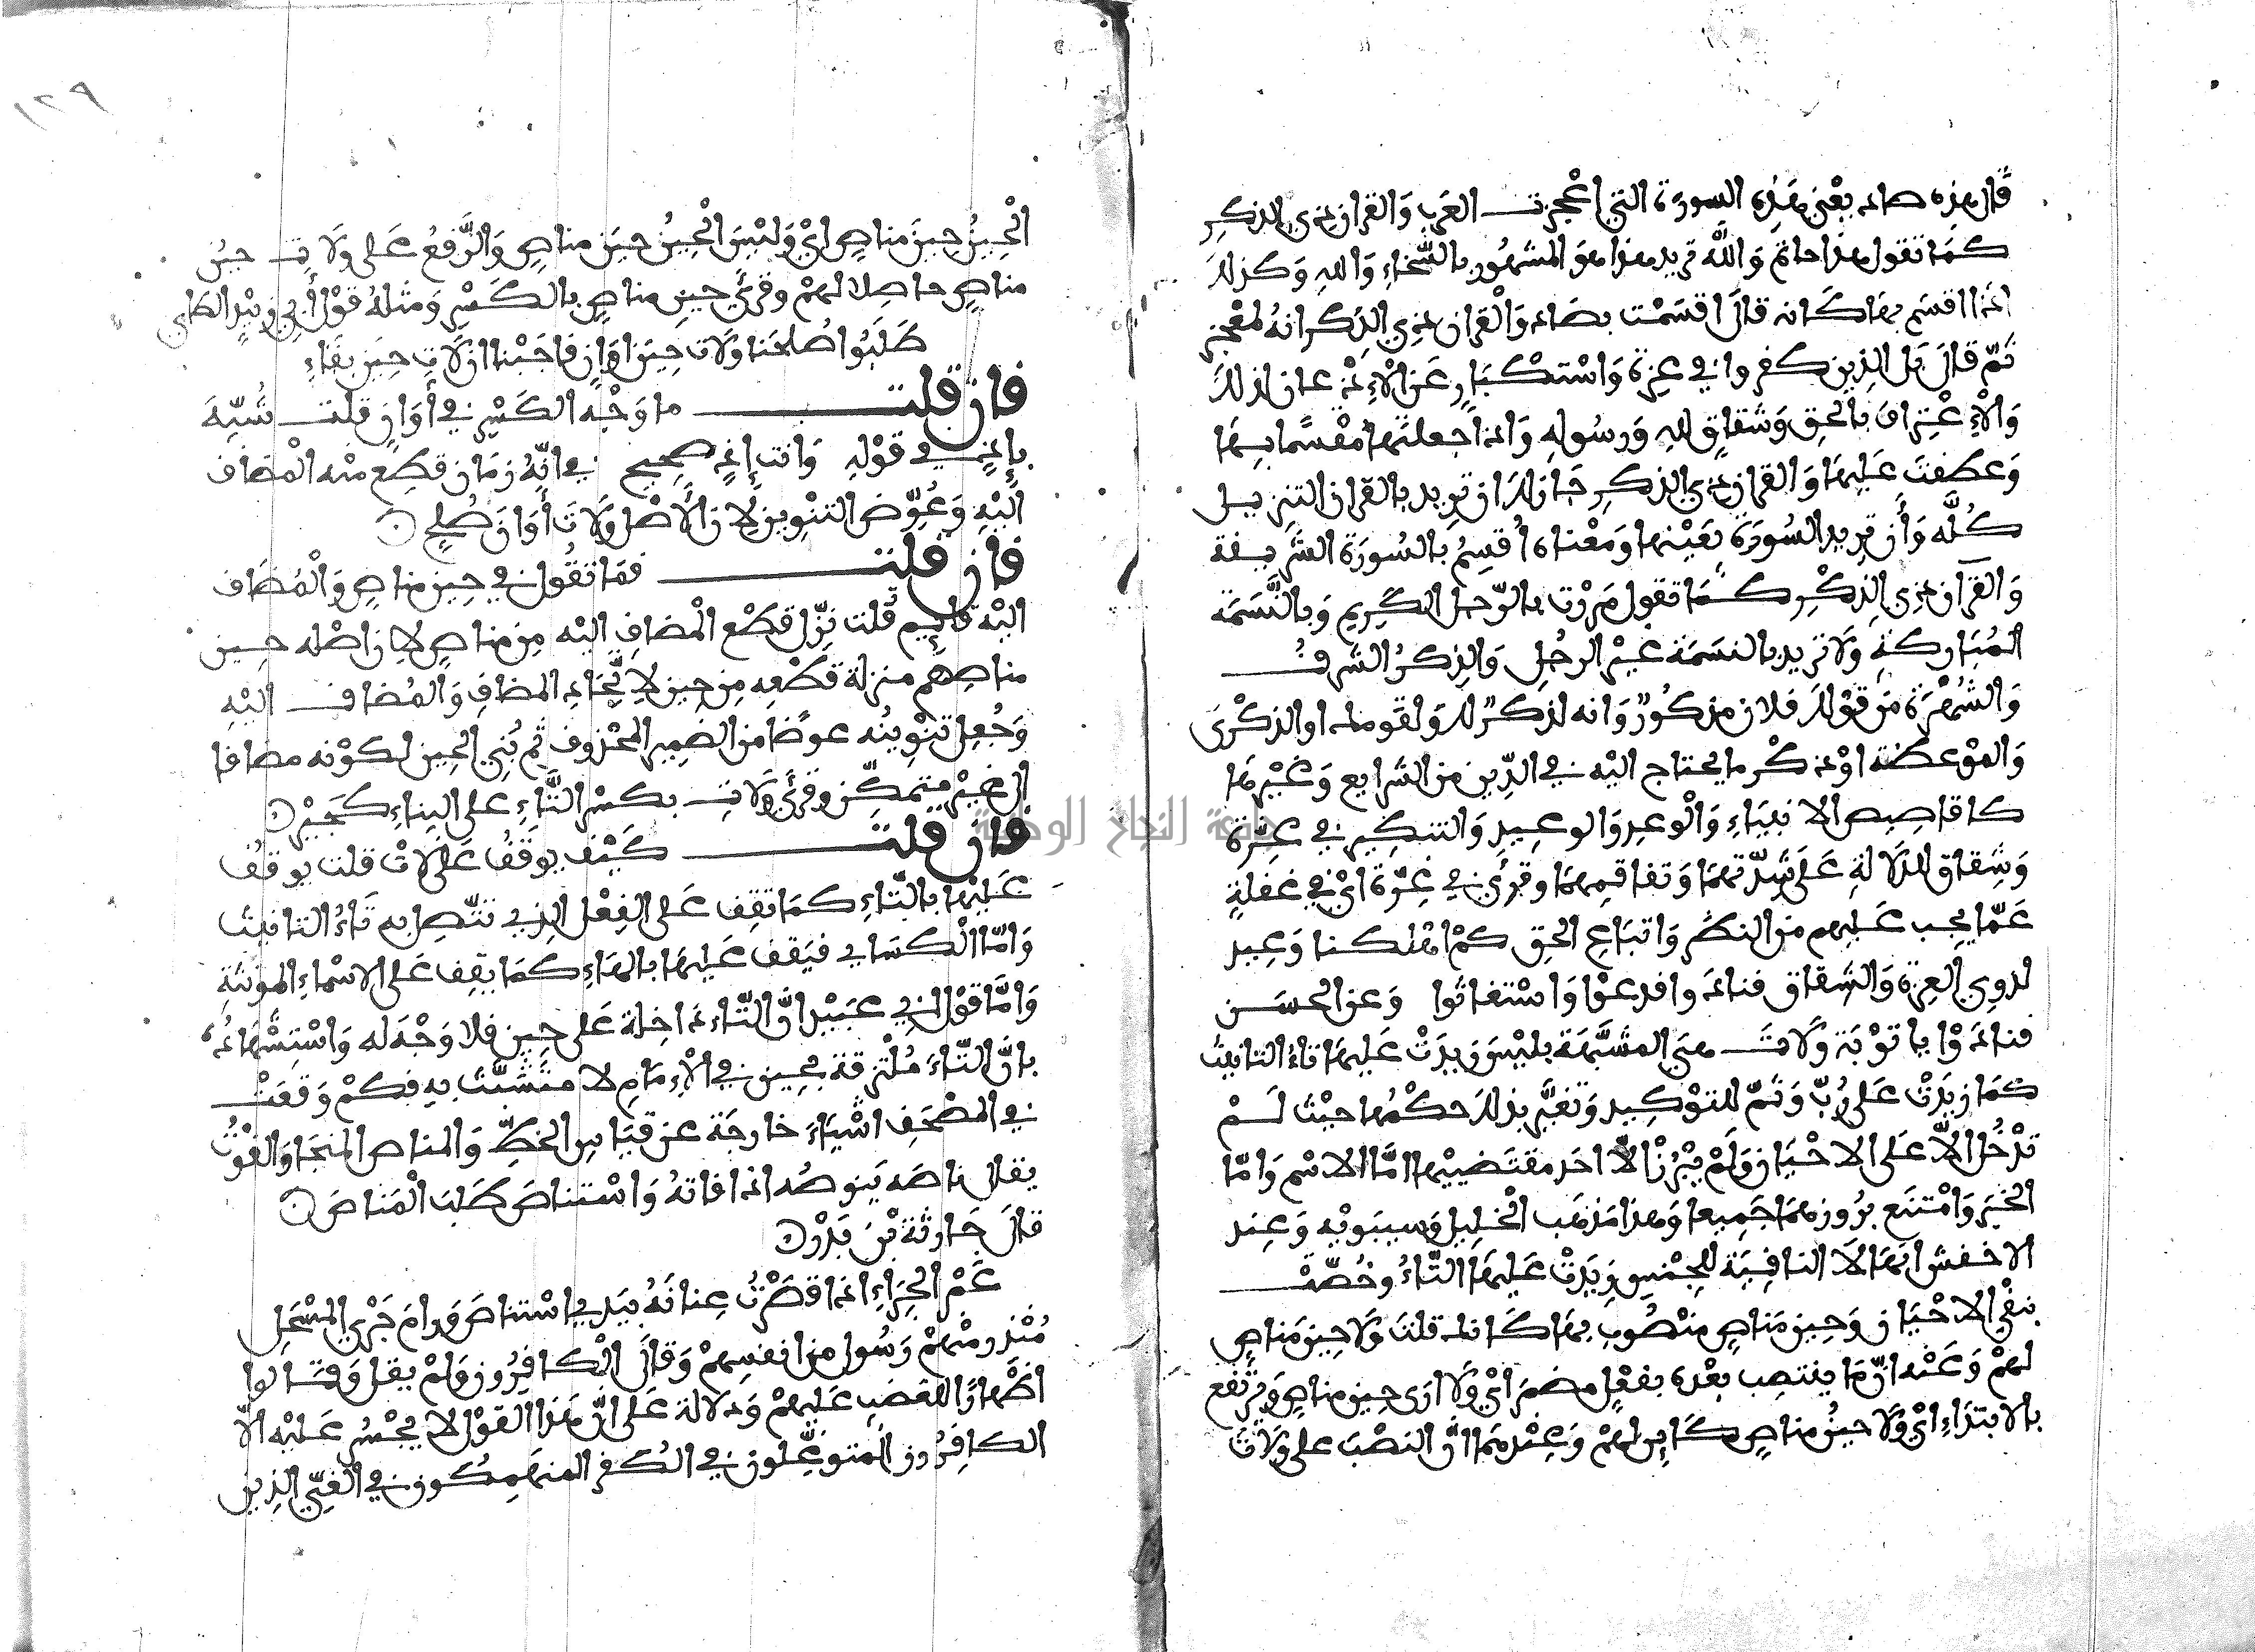 قال هذه صاد يعني هذه السورة التي اعجزت العرب والقران ذي الذكر
كما تقول هذا حاتم والله تريد هذا هو المشهور بالسخاء والله وكذلك
اذا اقسم بها كانه قال اقسمت بصاد والقران ذي الذكر انه لمعجز
ثم قال بل الذين كفروا في عزة واستكبار عن الاذعان لذلك
والاعتراف بالحق وشقاق لله ورسوله واذا جعلتها مقسما بها
وعطفت عليها والقران ذي الذكر جاز لك ان تريد بالقران التنزيل
كله وأن تريد السورة بعينها ومعناه أقسم بالسورة الشريفة
والقران ذي الذكر كما تقول مررت بالرجل الكريم وبالنسمة
المباركة ولا تريد بالنسمة غير الرجل والذكر الشرف
والشهرة من قولك فلان مذكور وانه لذكر لك ولقومك او الذكرى
والموعظة او ذكر ما يحتاج اليه في الدين من الشرايع وغيرها
كاقاصيص الانبياء والوعد والوعيد والتنكير في عزة
وشقاق للدلالة على شدتهما وتفاقمهما وقرئ في غرة اي في غفلة
عما يجب عليهم من النظر واتباع الحق كم اهلكنا وعيد
لذوي العزة والشقاق فنادوا فدعوا واستغاثوا وعن الحسن
فنادوا بالتوبة ولات هي المشبهة بليس زيدت عليها تاء التانيث
كما زيدت على رب وثم للتوكيد وتغير بذلك حكمها حيث لم
تدخل الا على الاحيان ولم يبرز الا احد مقتضييها اما الاسم واما
الخبر وامتنع بروزهما جميعا وهذا مذهب الخليل وسيبويه وعند
الاخفش انها لا النافية للجنس زيدت عليها التاء وخصت
بنفي الاحيان وحين مناص منصوب بها كانك قلت ولا حين مناص
لهم وعنه ان ما ينتصب بعده بفعل مضمر اي ولا ارى حين مناص ويرتفع
بالابتداء اي ولا حين مناص كاين لهم وعندهما ان النصب على ولات
الحين حين مناص اي وليس الحين حين مناص والرفع على ولات حين
مناص حاصلا لهم وقرئ حين مناص بالكسر ومثله قول أبي زبيد الطاي
طلبوا صلحنا ولات حين اوان فاجبنا ان لات حين بقاء
فان قلت ما وجه الكسر في أوان قلت شبه
بإذ في قوله وانت إذ صحيح في انه زمان قطع منه المضاف
اليه وعوض التنوين لان الأصل ولات أوان صلح
فان قلت فما تقول في حين مناص والمضاف
اليه قايم قلت نزل قطع المضاف اليه من مناص لان اصله حين
مناصهم منزلة قطعه من حين لاتخاد المضاف والمضاف اليه
وجعل تنوينه عوضا من الضمير المحذوف ثم بني الحين لكونه مضافا
الى غير متمكن وقرئ ولات بكسر التاء على البناء كجير
فان قلت كيف يوقف على لات قلت يوقف
عليها بالتاء كما تقف على الفعل الذي تتصل به تاء التانيث
واما الكساي فيقف عليها بالهاء كما يقف على الاسماء المونثة
واما قول ابي عبيد ان التاء داخلة على حين فلا وجه له واستشهاده
بان التاء ملتزقة بحين في الامام لا متشبث به فكم وقعت
في المصحف اشياء خارجة عن قياس الخط والمناص المنجا والفوت
يقال ناصه ينوصه اذا فاته واستناص طلب المناص
قال حارثة بن بدر
غمر الجراء اذا قصرت عنانه بيدي استناص ورام جري المسحل
منذر منهم رسول من انفسهم وقال الكافرون ولم يقل وقالوا
اظهارا للغضب عليهم ودلالة على ان هذا القول لا يجسر عليه الا
الكافرون المتوغلون في الكفر المنهمكون في الغي الذين